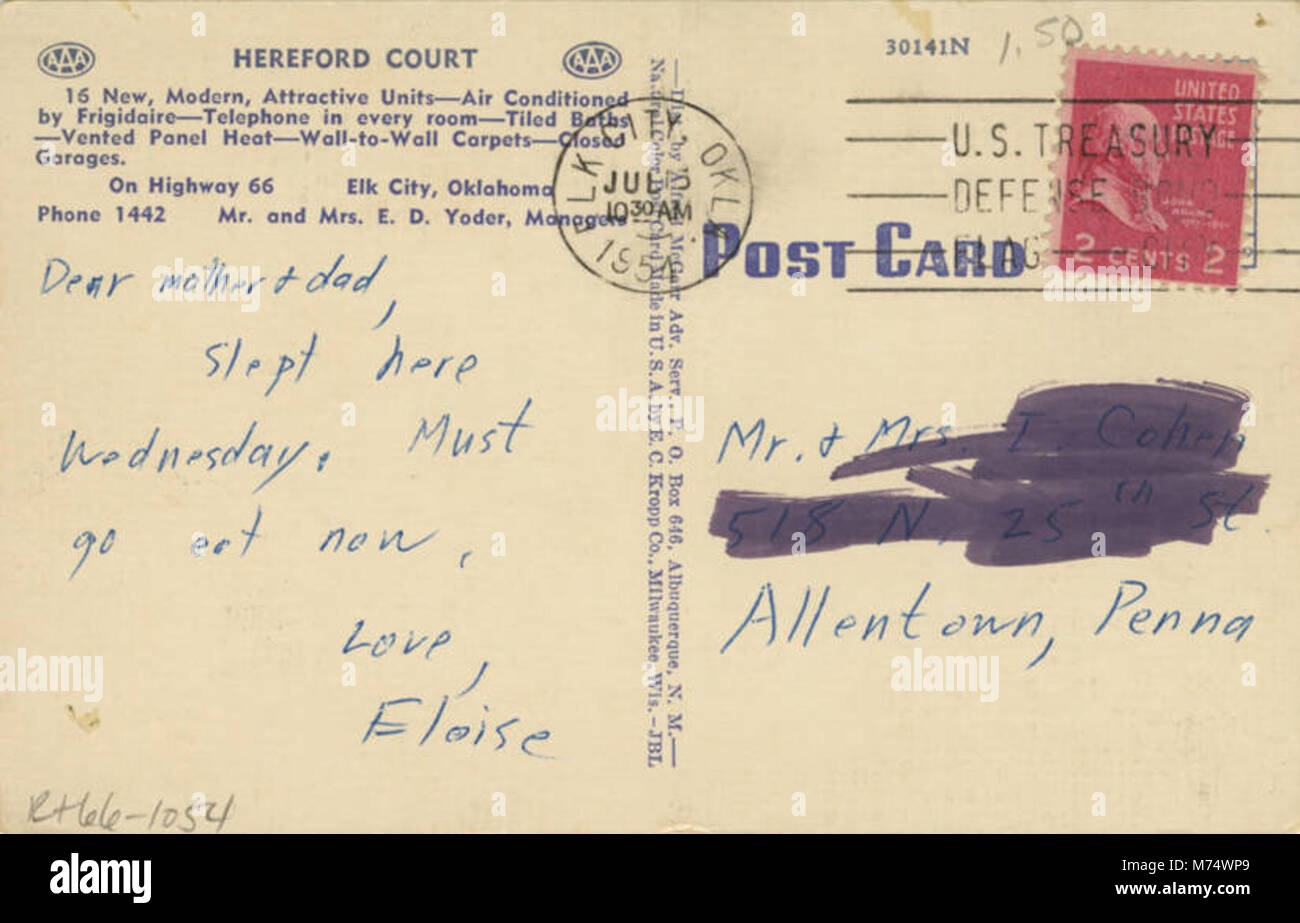 AAA HEREFORD COURT AAA
16 New, Modern, Attractive Units—Air Conditioned
by Frigidaire—Telephone in every room—Tiled Baths
—Vented Panel Heat—Wall-to-Wall Carpets—Closed
Garages.
On Highway 66 Elk City, Oklahoma
Phone 1442 Mr. and Mrs. E. D. Yoder, Managers
Dear mother + dad,
Slept here
Wednesday. Must
go eat now.
Love,
Eloise
RH66-1054
Adv. Serv., P. O. Box 646, Albuquerque, N. M.—
Card Made in U. S. A. by E. C. Kropp Co., Milwaukee, Wis.—JBL
ELK CITY, OKLA.
JUL
10 30 AM
1954
30141N
1.50
UNITED
STATES
POSTAGE
JOHN
ADAMS
2 CENTS 2
U.S. TREASURY
DEFENSE
FLAG
POST CARD
Mr. + Mrs. I. Cohen
518 N. 25th St.
Allentown, Penna
alamy
alamy
Image ID: M74WP9
www.alamy.com